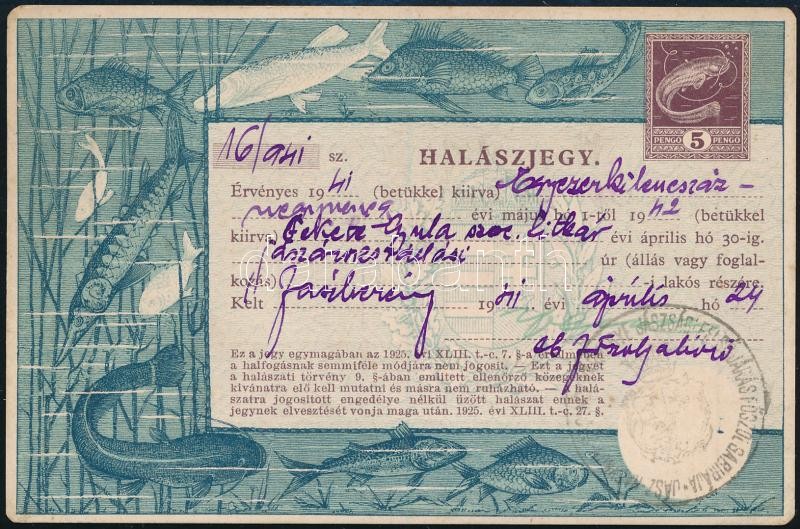 PENGŐ 5 PENGŐ
16/941 sz. HALÁSZJEGY.
Érvényes 1941 (betükkel kiirva) Egyezerkilencszáz-
negyvenegy évi május hó 1-től 1942 (betükkel
kiirva) Fekete Gyula évi április hó 30-ig.
úr (állás vagy foglal-
kozás) lakós részére.
Kelt Jászberény 1941 évi április hó 24
Ez a jegy egymagában az 1925. évi XLIII. t.-c. 7. §-a értelmében
a halfogásnak semmiféle módjára nem jogosit. — Ezt a jegyet
a halászati törvény 9. §-ában emlitett ellenőrző közegeknek
kivánatra elő kell mutatni és másra nem ruházható. — A halá-
szatra jogositott engedélye nélkül üzött halászat ennek a
jegynek elvesztését vonja maga után. 1925. évi XLIII. t.-c. 27. §.